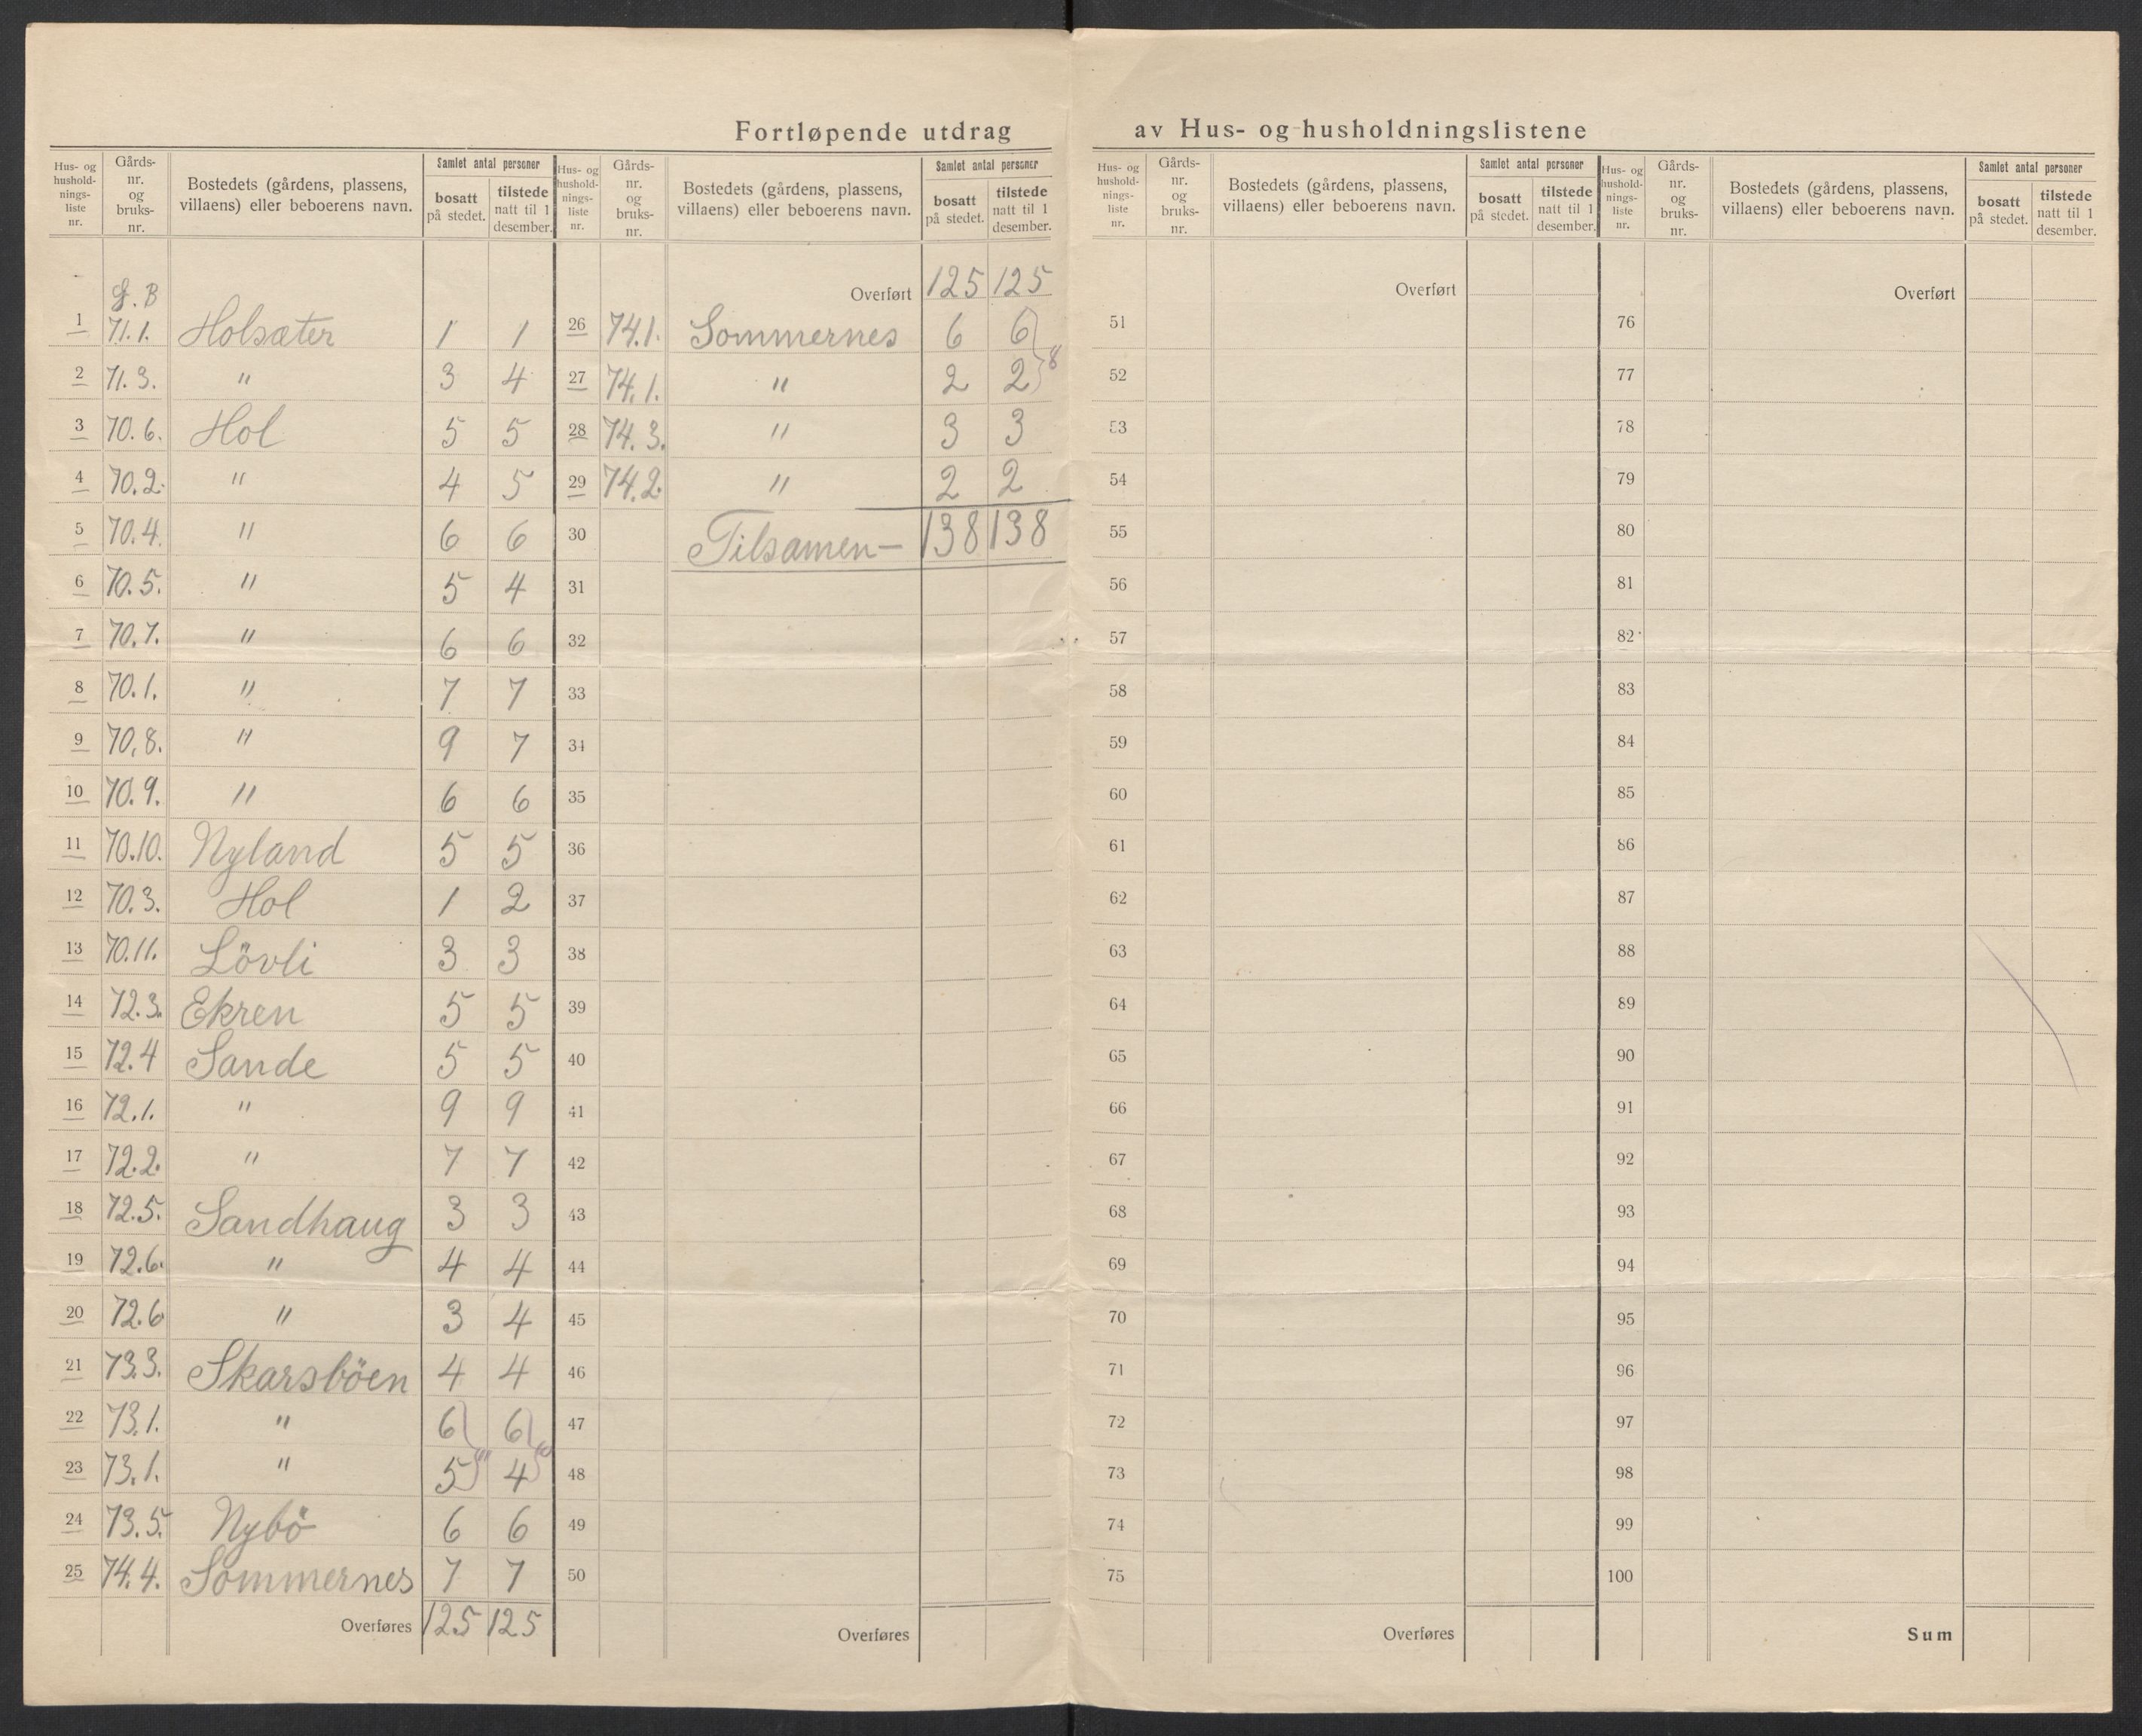 Fortløpende utdrag av Hus- og husholdningslistene
Hus- og hushold-nings-liste nr. Gårds-nr. og bruks-nr. Bostedets (gårdens, plassens, villaens) eller beboerens navn. Samlet antal personer bosatt på stedet. tilstede natt til 1 desember.
G. B
1 71.1. Holsæter 1 1
2 71.3. " 3 4
3 70.6. Hol 5 5
4 70.2. " 4 5
5 70.4. " 6 6
6 70.5. " 5 4
7 70.7. " 6 6
8 70.1. " 7 7
9 70.8. " 9 7
10 70.9. " 6 6
11 70.10. Nyland 5 5
12 70.3. Hol 1 2
13 70.11. Lövli 3 3
14 72.3. Ekren 5 5
15 72.4 Sande 5 5
16 72.1. " 9 9
17 72.2. " 7 7
18 72.5. Sandhaug 3 3
19 72.6. " 4 4
20 72.6 " 3 4
21 73.3. Skarsböen 4 4
22 73.1. " 6 6
23 73.1. " 5 11 4 10
24 73.5. Nybö 6 6
25 74.4. Sommernes 7 7
Overføres 125 125
Hus- og hushold-nings-liste nr. Gårds-nr. og bruks-nr. Bostedets (gårdens, plassens, villaens) eller beboerens navn. Samlet antal personer bosatt på stedet. tilstede natt til 1 desember.
Overført 125 125
26 74.1. Sommernes 6 6
27 74.1. " 2 2 8
28 74.3. " 3 3
29 74.2. " 2 2
30 Tilsamen— 138 138
31
32
33
34
35
36
37
38
39
40
41
42
43
44
45
46
47
48
49
50
Overføres
Hus- og hushold-nings-liste nr. Gårds-nr. og bruks-nr. Bostedets (gårdens, plassens, villaens) eller beboerens navn. Samlet antal personer bosatt på stedet. tilstede natt til 1 desember.
Overført
51
52
53
54
55
56
57
58
59
60
61
62
63
64
65
66
67
68
69
70
71
72
73
74
75
Overføres
Hus- og hushold-nings-liste nr. Gårds-nr. og bruks-nr. Bostedets (gårdens, plassens, villaens) eller beboerens navn. Samlet antal personer bosatt på stedet. tilstede natt til 1 desember.
Overført
76
77
78
79
80
81
82
83
84
85
86
87
88
89
90
91
92
93
94
95
96
97
98
99
100
Sum